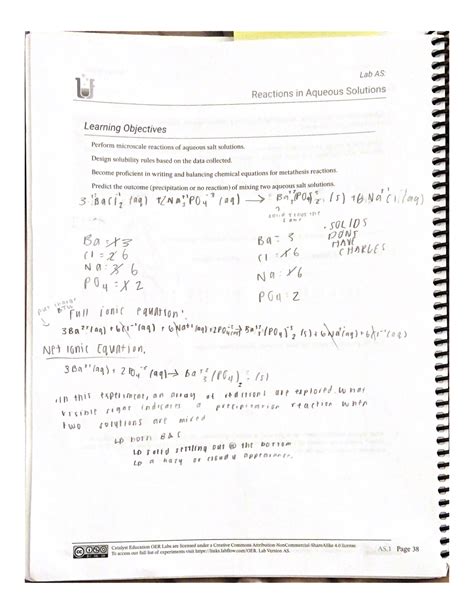 Lab AS:
Reactions in Aqueous Solutions
Learning Objectives
Perform microscale reactions of aqueous salt solutions.
Design solubility rules based on the data collected.
Become proficient in writing and balancing chemical equations for metathesis reactions.
Predict the outcome (precipitation or no reaction) of mixing two aqueous salt solutions.
3 BaCl₂ (aq) + 2Na₃PO₄ (aq) → Ba₃(PO₄)₂ (s) + 6NaCl (aq)
• SOLIDS
DONT
HAVE
CHARGES
Ba = 1 3 Ba = 3
Cl = 2 6 Cl = 1 6
Na = 3 6 Na = 1 6
PO₄ = 1 2 PO₄ = 2
Full ionic equation:
3Ba²⁺(aq) + 6Cl⁻(aq) + 6Na⁺(aq) + 2PO₄⁻³(aq) → Ba₃(PO₄)₂ (s) + 6Na(aq) + 6Cl⁻(aq)
Net ionic Equation.
3Ba²⁺(aq) + 2PO₄⁻³(aq) → Ba₃(PO₄)₂ (s)
• In this experiment, an array of reactions are explored. What
visible signs indicates a precipitation reaction when
two solutions are mixed
↳ both B & C
↳ solid settling out @ the bottom
↳ a hazy or cloudy appearance.
Catalyst Education OER Labs are licensed under a Creative Commons Attribution-NonCommercial-ShareAlike 4.0 license.
To access our full list of experiments visit https://links.labflow.com/OER. Lab Version AS.
AS.1 Page 38